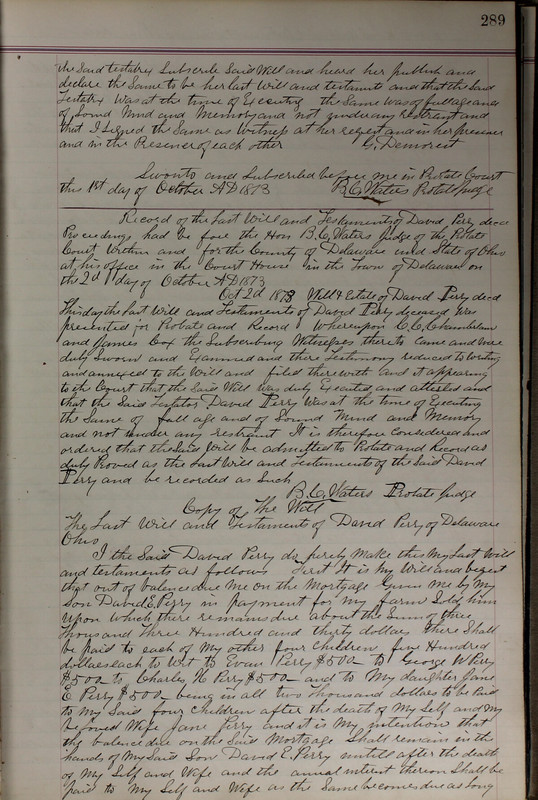 289
the Said testatrix Subscribe Said Will and heard her publish and
declare the Same to be her last Will and testament and that the Said
Testatrix Was at the time of Executing the Same was of full age and
of Sound Mind and Memory and not under any Restraint and
that I Signed the Same as Witness at her request and in her presence
and in the Presence of each other G. Demorest
Sworn to and Subscribed before me in Probate Court
this 1st day of October AD 1873 B.C. Waters Probate Judge
Record of the Last Will and Testaments of David Perry decd
Proceedings had be fore the Hon B.C. Waters Judge of the Probate
Court Within and for the County of Delaware and State of Ohio
at his office in the Court House in the Town of Delaware on
the 2d day of October AD 1873
Oct 2d 1873 Will & Estate of David Perry decd
This day the Last Will and Testaments of David Perry deceased was
presented for Probate and Record Whereupon C.C. Chamberlain
and James Cox the Subscribing Witnesses thereto came and were
duly Sworn and Examined and there Testimony reduced to Writing
and annexed to the Will and filed therewith and it appearing
to the Court that the Said Will was duly Executed and attested and
that the Said Testator David Perry Was at the time of Executing
the Same of full age and of Sound Mind and Memory
and not under any restraint It is therefore Considered and
ordered that the Said Will be admitted to Probate and Record as
duly Proved as the Last Will and Testements of the Said David
Perry and be recorded as Such
B.C. Waters Probate Judge
Copy of The Will
The Last Will and Testament of David Perry of Delaware
Ohio
I the Said David Perry do hereby Make this My Last Will
and testaments as follows First It is my Will and
that out of balence due Me on the Mortgage Given Me by My
Son David E. Perry in payment for my farm Sold him
Upon Which there remains due about the Sum of three
thousand three Hundred and thirty dollars there Shall
be paid to each of My other four Children five Hundred
dollars each to Wit to Evan Perry $500 to George W Perry
$500 to Charles H Perry $500 and to My daughter Jane
E. Perry $500 being in all two thousand dollars to be Paid
to My Said four Children after the death of My Self and My
beloved Wife Jane Perry and it is My intention that
the balence due on the Said Mortgage Shall remain in the
hands of My Said Son David E. Perry untill after the death
of My Self and Wife and the annual interest thereon Shall be
paid to My Self and Wife as the Same becomes due as long